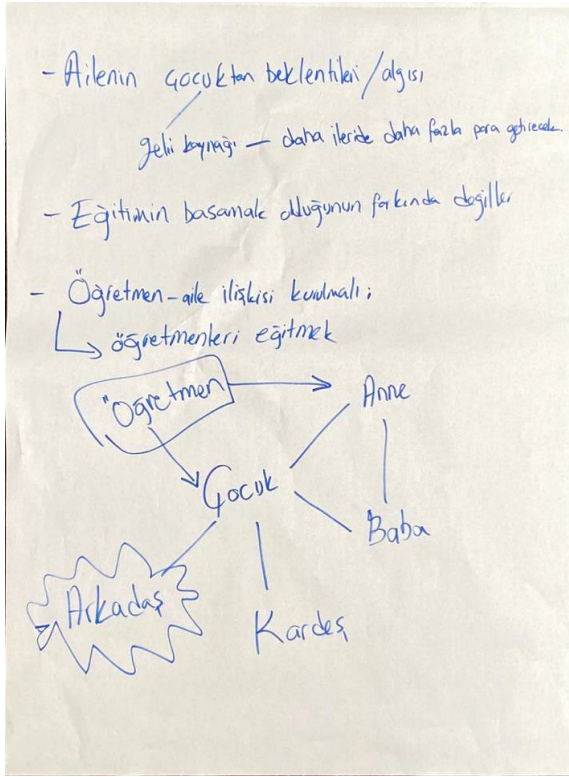 - Ailenin çocuktan beklentileri/algısı
gelir kaynağı — daha ileride daha fazla para getirecek
- Eğitimin basamak olduğunun farkında değiller
- Öğretmen-aile ilişkisi kurulmalı;
öğretmenleri eğitmek
Öğretmen
Anne
Çocuk
Baba
Arkadaş
Kardeş